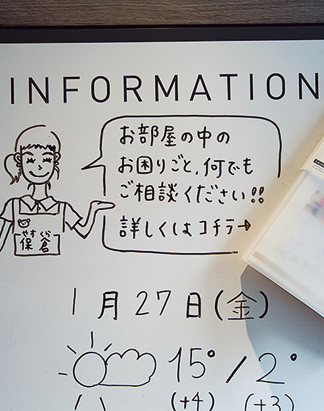 INFORMATION
お部屋の中の
お困りごと、何でも
ご相談ください!!
詳しくはコチラ→
保倉
1月27日(金)
15°/2°
(+4) (+3)